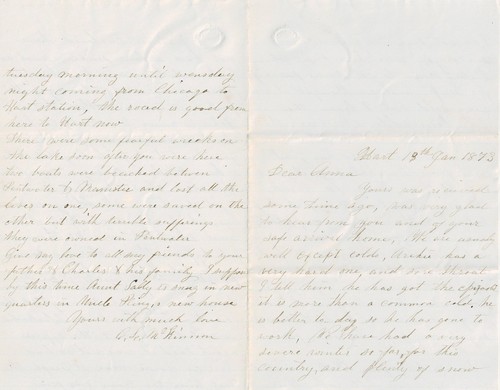 Hart 13th Jan 1873
Dear Anna
Yours was received
some time ago, was very glad
to hear from you and of your
safe arrival home, We are usualy
well except colds, Archie has a
very hard one, and sore throat
I tell him he has got the
it is more than a common cold. he
is better to day so he has gone to
work, We have had a very
severe winter so far, for this
country, and plenty of snow
tuesday morning until wensday
night coming from Chicago to
Hart station, the road is good from
here to Hart now
There were some fearful wrecks on
the lake soon after you were here
two boats were beached between
Pentwater & and lost all the
lives on one, some were saved on the
other but with terrible sufferings
they were owned in Pentwater
Give my love to all my friends to your
father & Charles & his family, I suppose
by this time Aunt Sally is snug in new
quarters in Uncle new house
Yours with much love